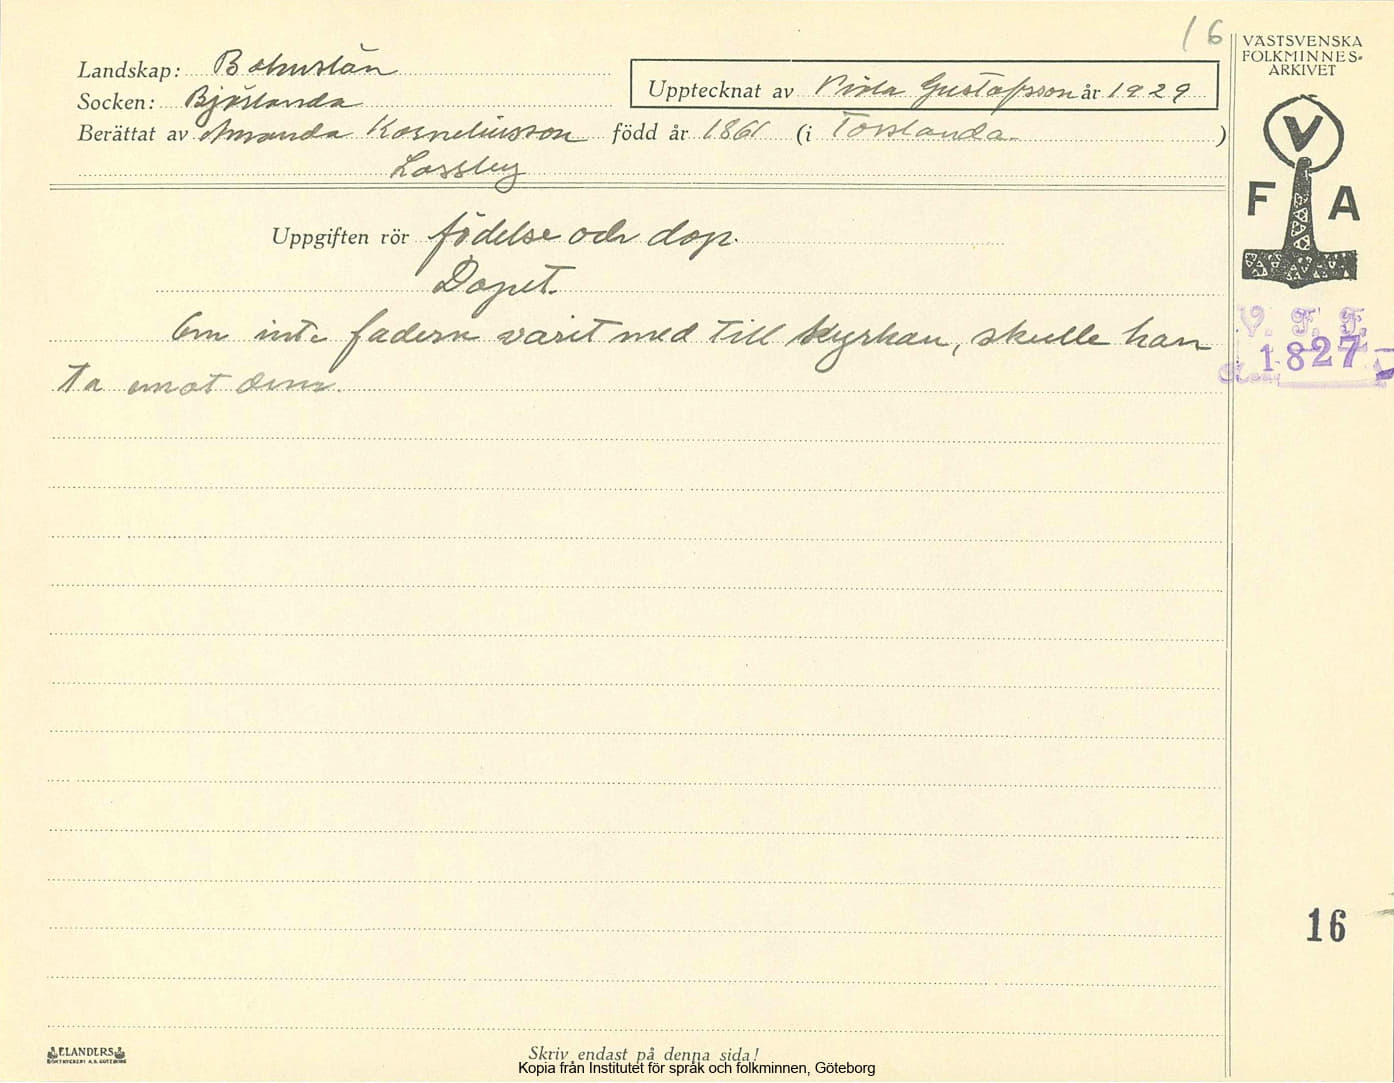 16
VÄSTSVENSKA
FOLKMINNES-
ARKIVET
Landskap: Bohuslän
Upptecknat av Gustafsson år 1929
Socken: Björlanda
Berättat av Amanda Korneliusson född år 1861 (i Torslanda )
Lossby
V
F A
Uppgiften rör födelse och dop.
Dopet.
Om inte fadern varit med till kyrkan, skulle han
ta emot dem.
V. F. F.
1827
16
ELANDERS
BOKTRYCKERI A.B. GÖTEBORG
Skriv endast på denna sida!
Kopia från Institutet för språk och folkminnen, Göteborg